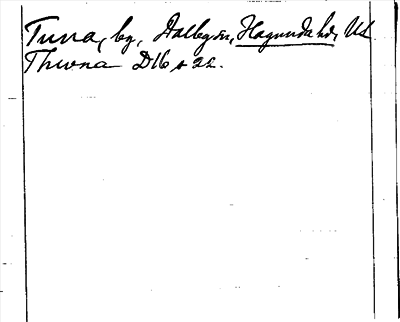 Tuna, by, Dalby sn, Hagunda hd, Ul.
Thwna D16 s 22.